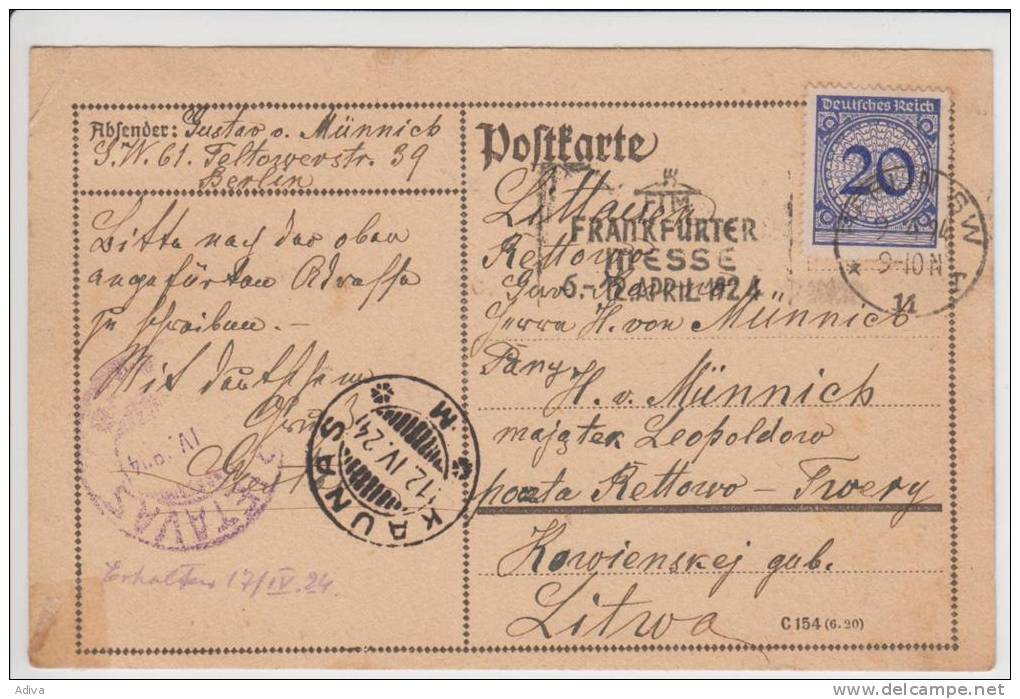 Absender: Gustav v. Münnich
S.W. 61. Teltowerstr. 39
Berlin
Bitte nach der oben
angeführten Adresse
zu schreiben. –
Mit deutschem
Gruß
Postkarte
Deutsches Reich
20
SW
9-10 N
11
FRANKFURTER
MESSE
6.-12. APRIL 1924
Littauen
Rettowo
Herrn H. von Münnich
Pany
H. v. Münnich
majątek Leopoldow
poczta Rettowo – Twery
Kowienskej gub.
Litwa
KAUNAS
12.IV.24
M
TAVAS
IV
Erhalten 17/IV. 24
C 154 (6. 20)
Adiva
delcampe.net